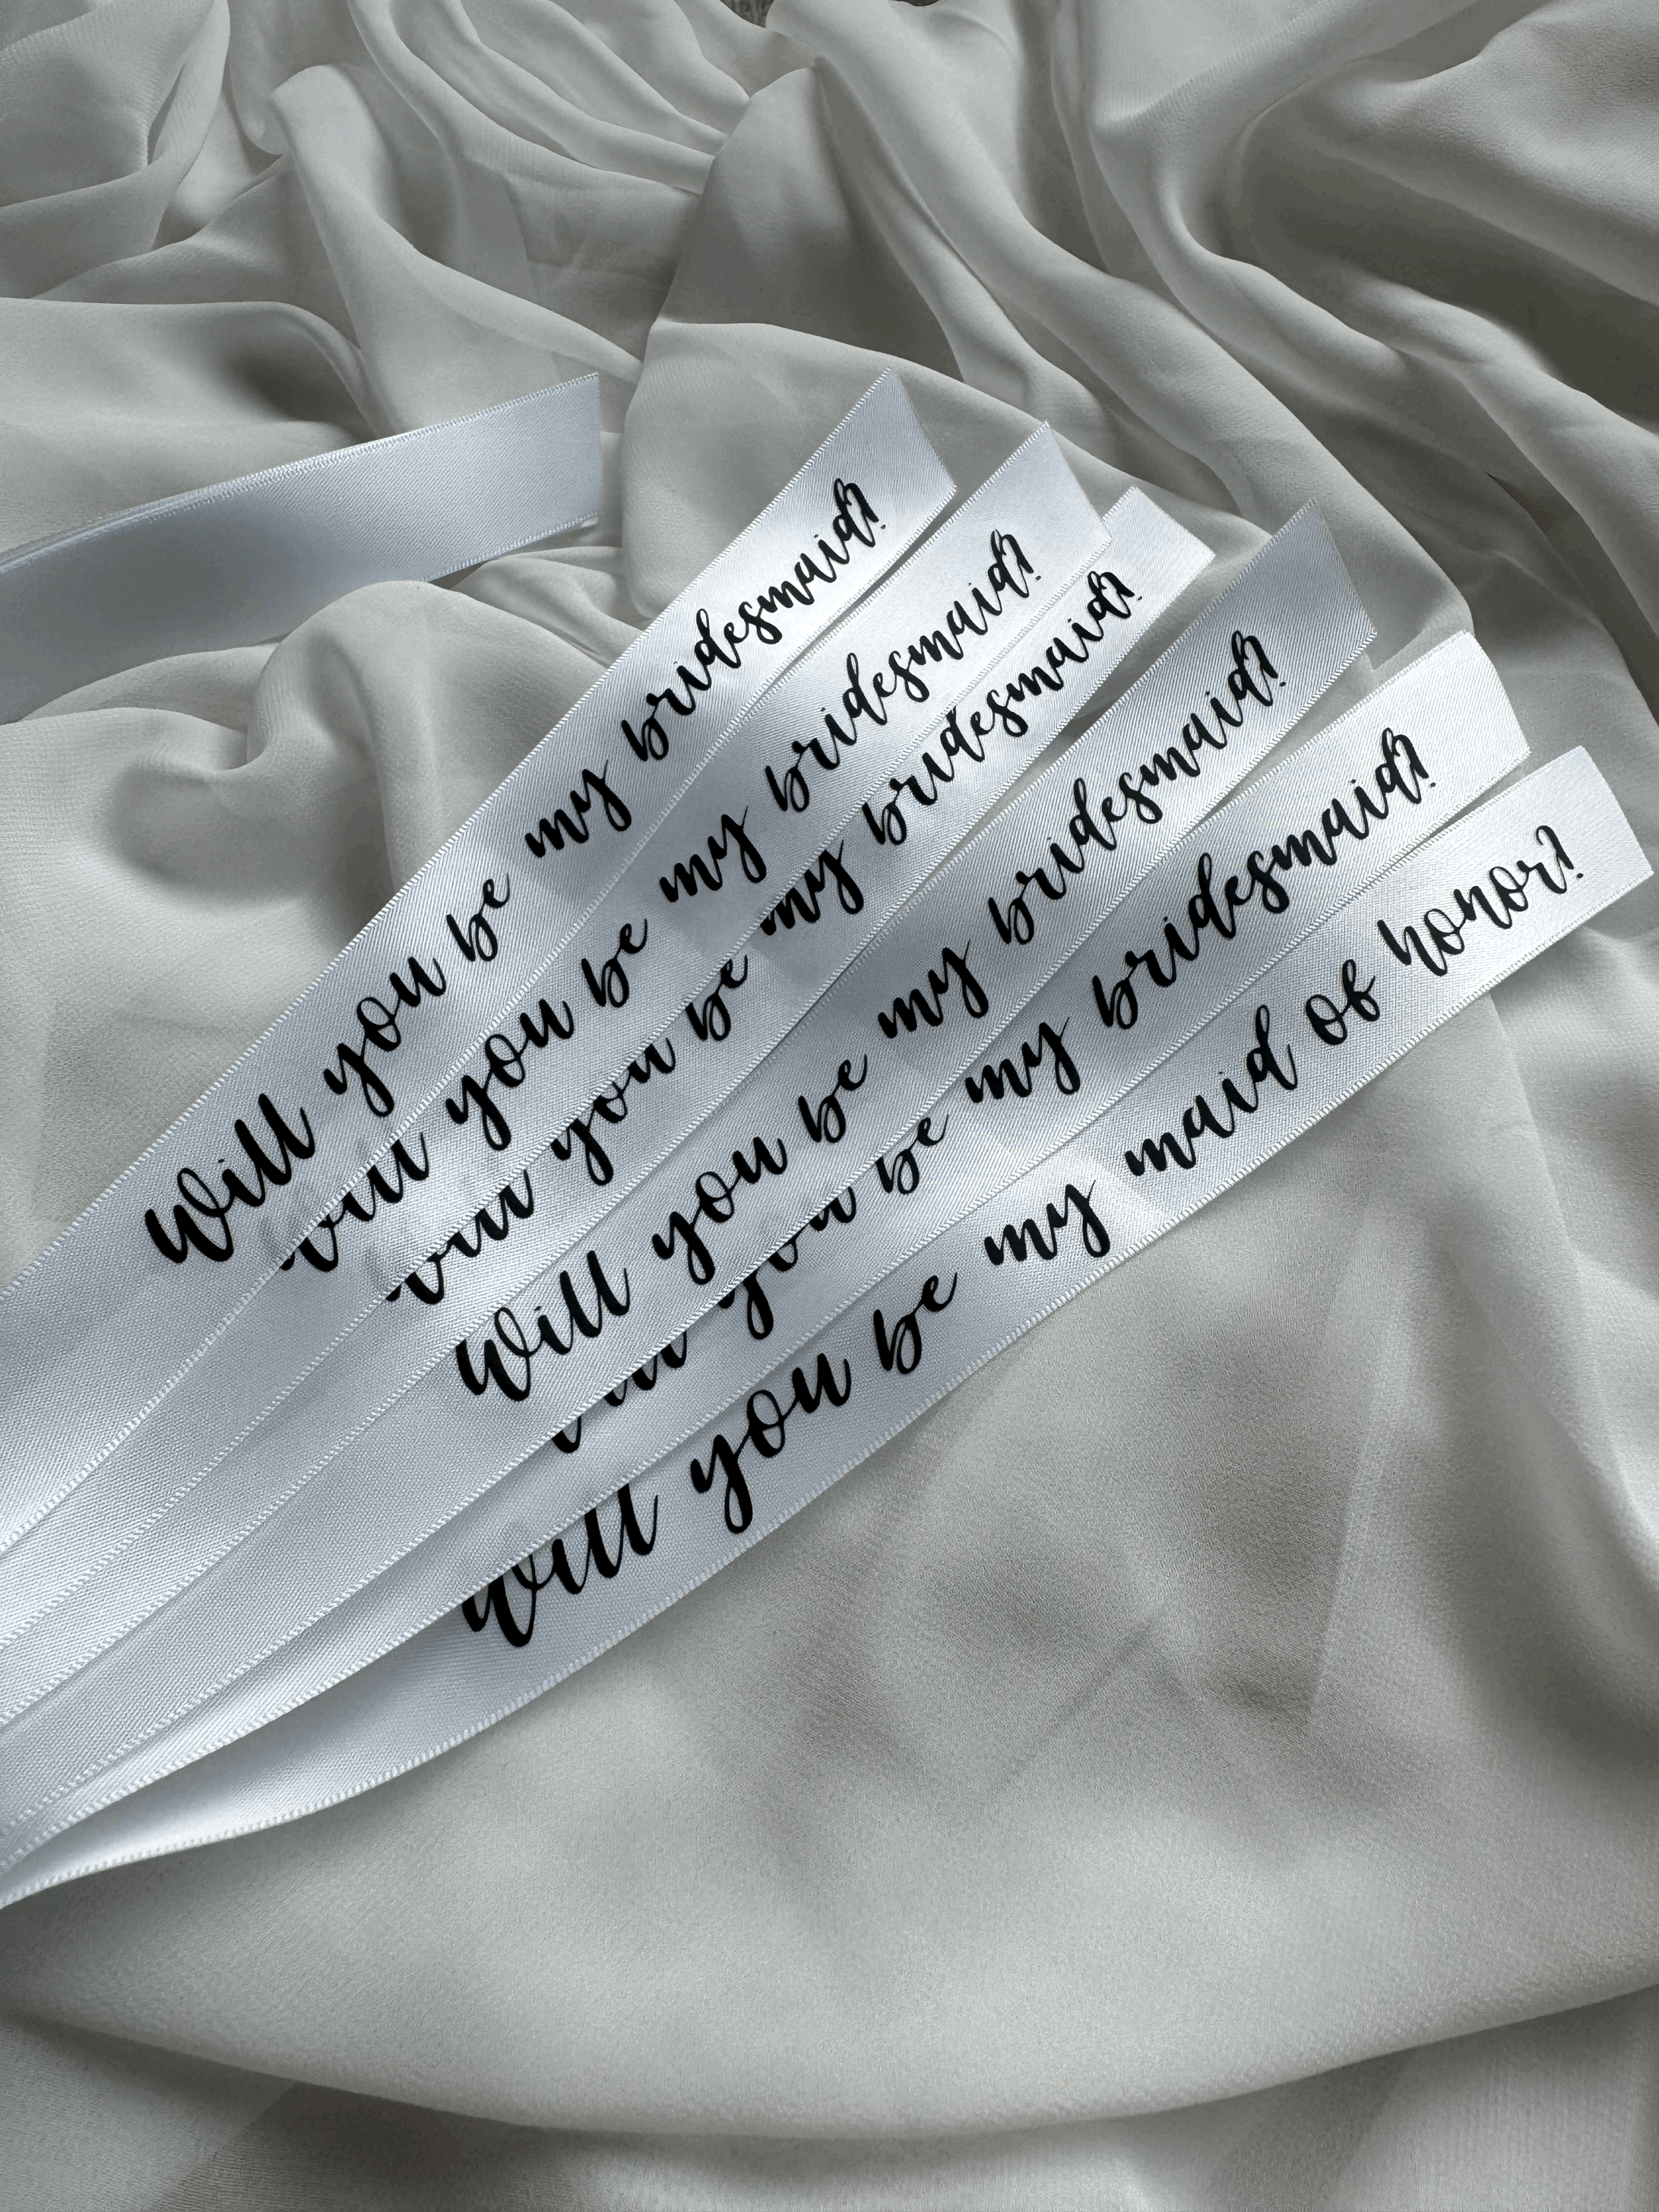 Will you be my bridesmaid?
Will you be my bridesmaid?
Will you be my bridesmaid?
Will you be my bridesmaid?
Will you be my bridesmaid?
Will you be my maid of honor?